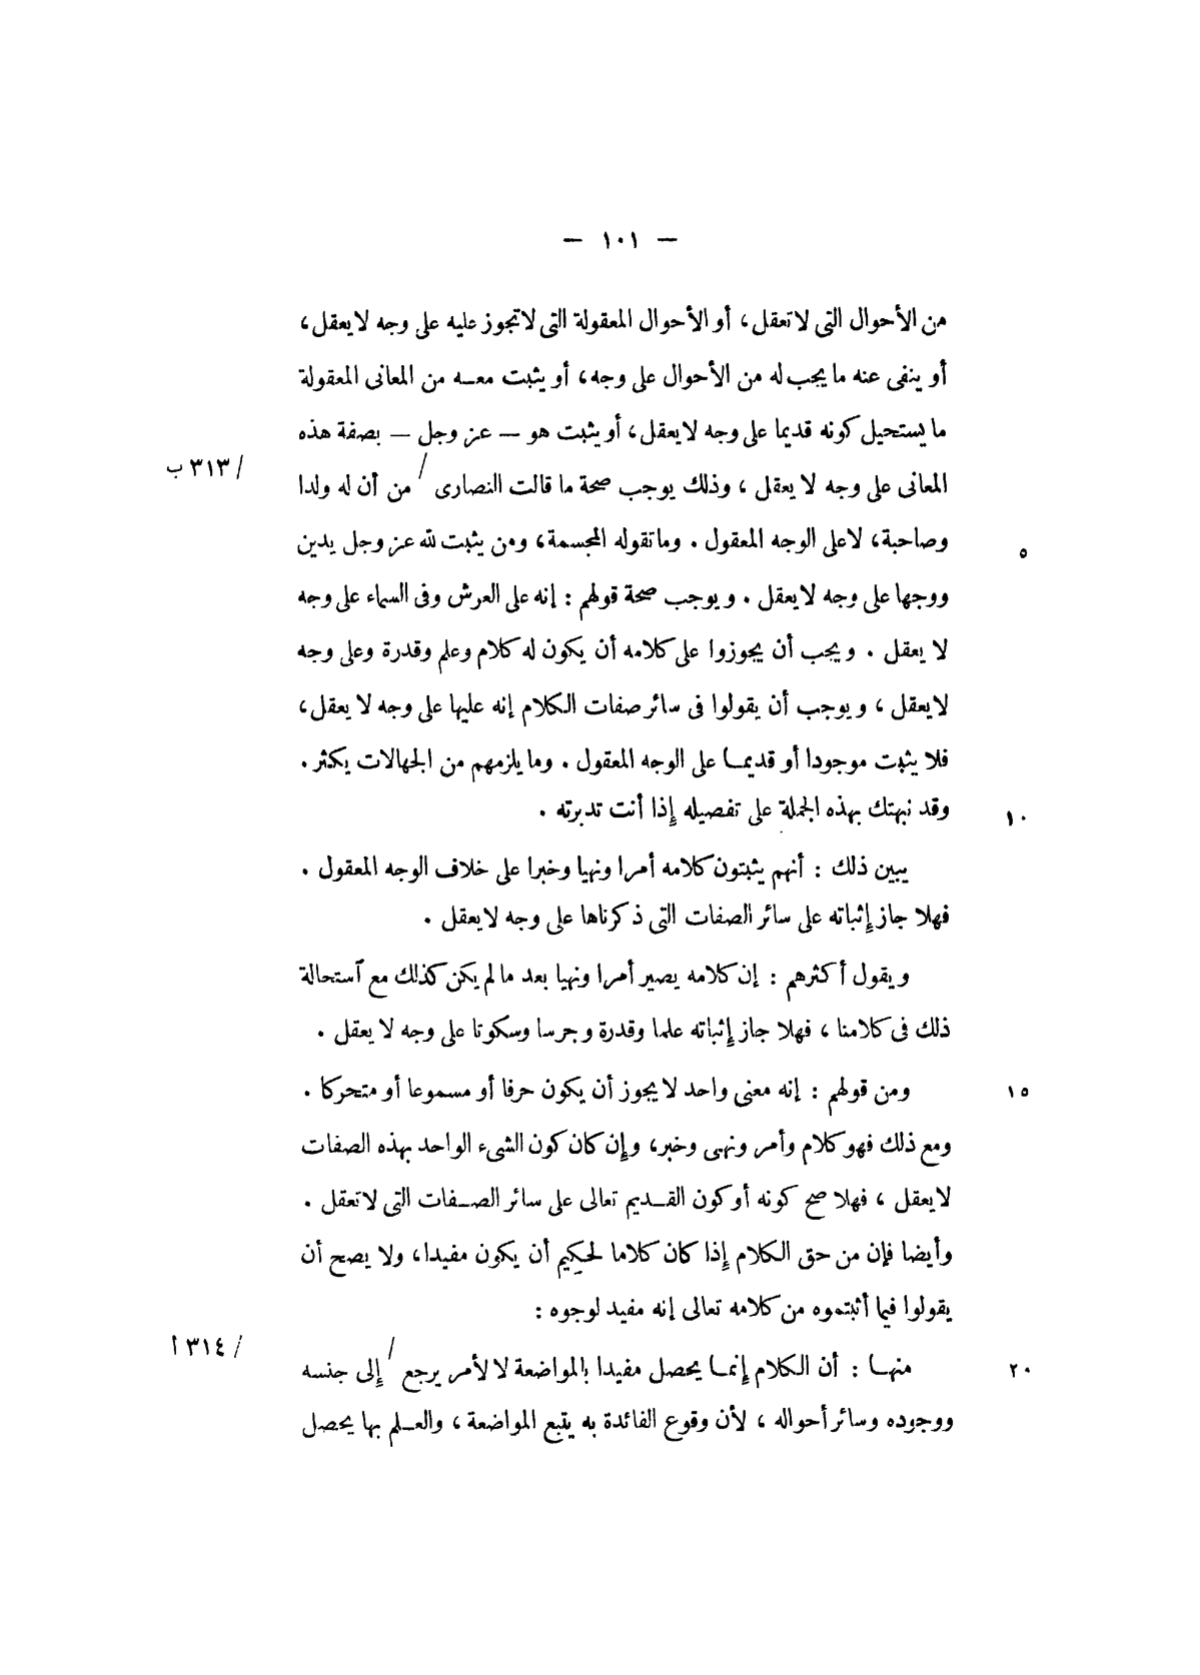 — ١٠١ —
من الأحوال التى لا تعقل ، أو الأحوال المعقولة التى لا تجوز عليه على وجه لا يعقل ،
أو ينفى عنه ما يجب له من الأحوال على وجه ، أو يثبت معه من المعانى المعقولة
ما يستحيل كونه قديما على وجه لا يعقل ، أو يثبت هو — عز وجل — بصفة هذه
المعانى على وجه لا يعقل ، وذلك يوجب صحة ما قالت النصارى / من أن له ولدا
/ ٣١٣ ب
وصاحبة ، لا على الوجه المعقول . وما تقوله المجسمة ، ومن يثبت لله عز وجل يدين
٥
ووجها على وجه لا يعقل . ويوجب صحة قولهم : إنه على العرش وفى السماء على وجه
لا يعقل . ويجب أن يجوزوا على كلامه أن يكون له كلام وعلم وقدرة وعلى وجه
لا يعقل ، ويوجب أن يقولوا فى سائر صفات الكلام إنه عليها على وجه لا يعقل ،
فلا يثبت موجودا أو قديما على الوجه المعقول . وما يلزمهم من الجهالات يكثر .
وقد نبهتك بهذه الجملة على تفصيله إذا أنت تدبرته .
١٠
يبين ذلك : أنهم يثبتون كلامه أمرا ونهيا وخبرا على خلاف الوجه المعقول .
فهلا جاز إثباته على سائر الصفات التى ذكرناها على وجه لا يعقل .
ويقول أكثرهم : إن كلامه يصير أمرا ونهيا بعد ما لم يكن كذلك مع آستحالة
ذلك فى كلامنا ، فهلا جاز إثباته علما وقدرة وجرسا وسكوتا على وجه لا يعقل .
ومن قولهم : إنه معنى واحد لا يجوز أن يكون حرفا أو مسموعا أو متحركا .
١٥
ومع ذلك فهو كلام وأمر ونهى وخبر ، وإن كان كون الشىء الواحد بهذه الصفات
لا يعقل ، فهلا صح كونه أو كون القديم تعالى على سائر الصفات التى لا تعقل .
وأيضا فإن من حق الكلام إذا كان كلاما لحكيم أن يكون مفيدا ، ولا يصح أن
يقولوا فيما أثبتموه من كلامه تعالى إنه مفيد لوجوه :
منها : أن الكلام إنما يحصل مفيدا بالمواضعة لا لأمر يرجع / إلى جنسه
/ ٣١٤ ا
٢٠
ووجوده وسائر أحواله ، لأن وقوع الفائدة به يتبع المواضعة ، والعلم بها يحصل